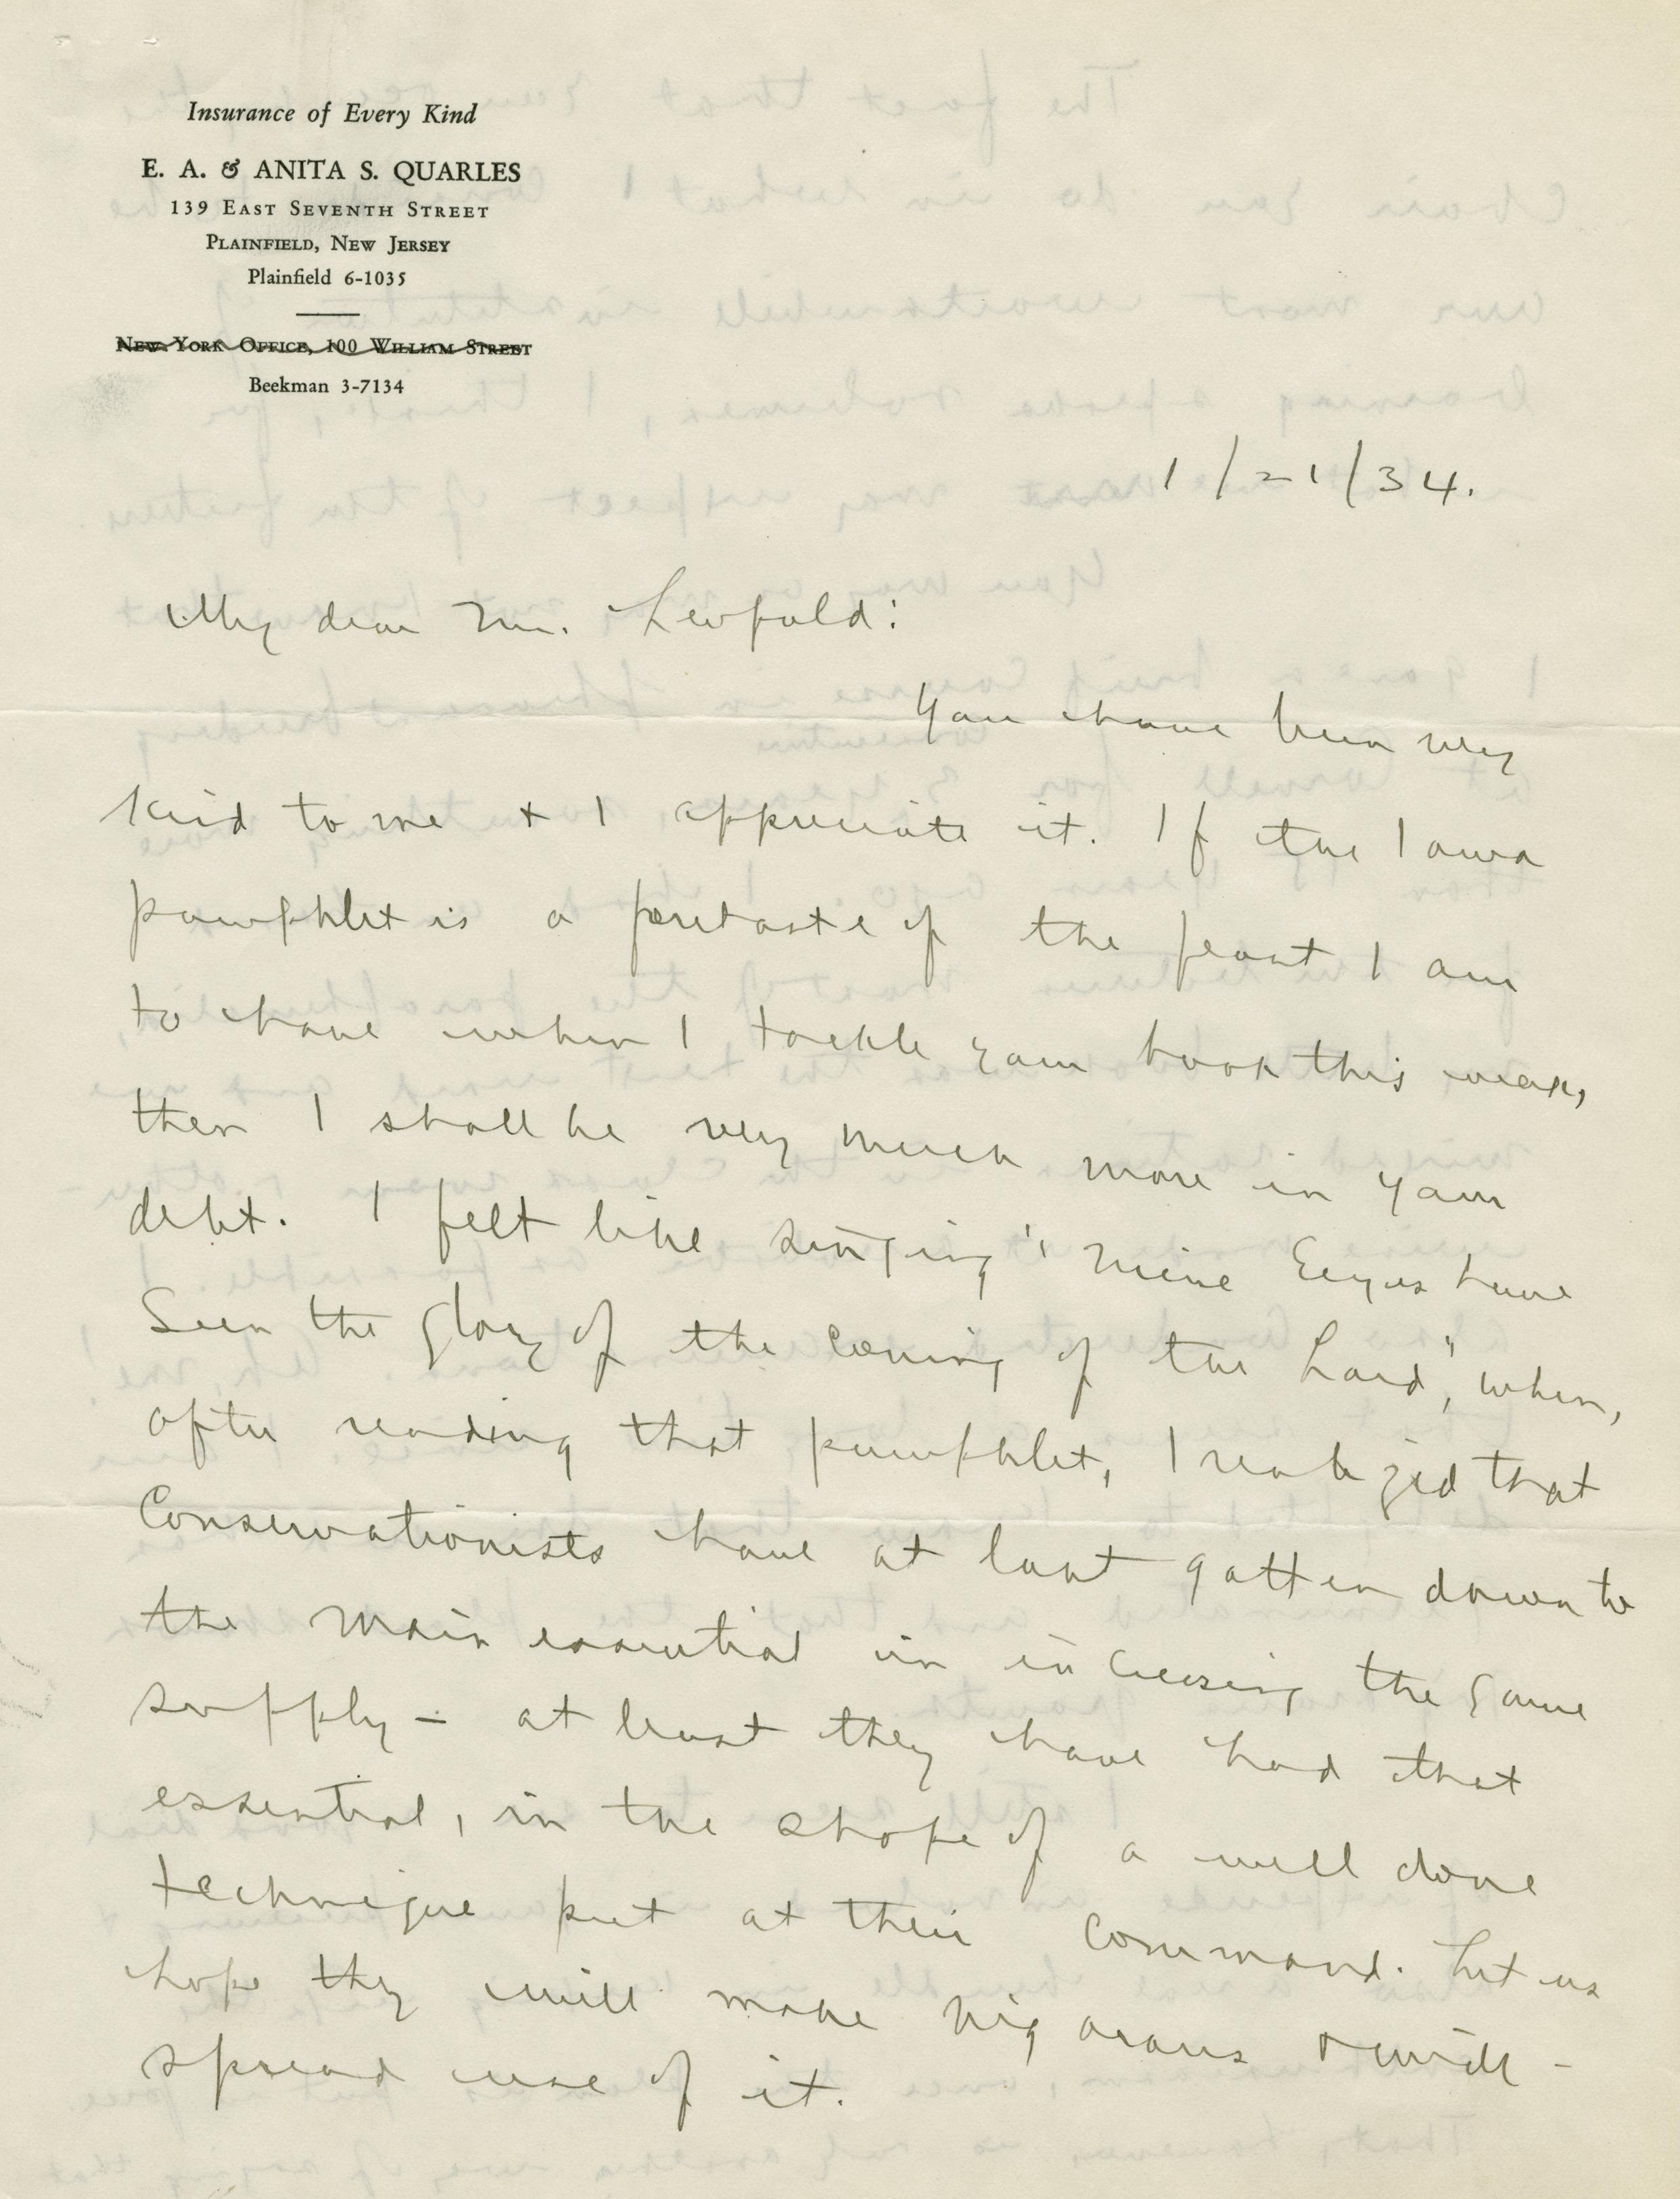 Insurance of Every Kind
E. A. & ANITA S. QUARLES
139 EAST SEVENTH STREET
PLAINFIELD, NEW JERSEY
Plainfield 6-1035
NEW YORK OFFICE, 100 WILLIAM STREET
Beekman 3-7134
1/21/34.
My dear Mr. Leopold:
You have been very
kind to me + I appreciate it. If the Iowa
pamphlet is a foretaste of the feast I am
to have when I tackle your book this week,
then I shall be very much more in your
debt. I felt like singing "Mine Eeyes have
Seen the glory of the coming of the Lord", when,
after reading that pamphlet, I realized that
Conservationists have at last gotten down to
the main essential in increasing the game
supply - at least they have had that
essential, in the shape of a well done
technique put at their command. Let us
hope they will make vigorous + wide-
spread use of it.